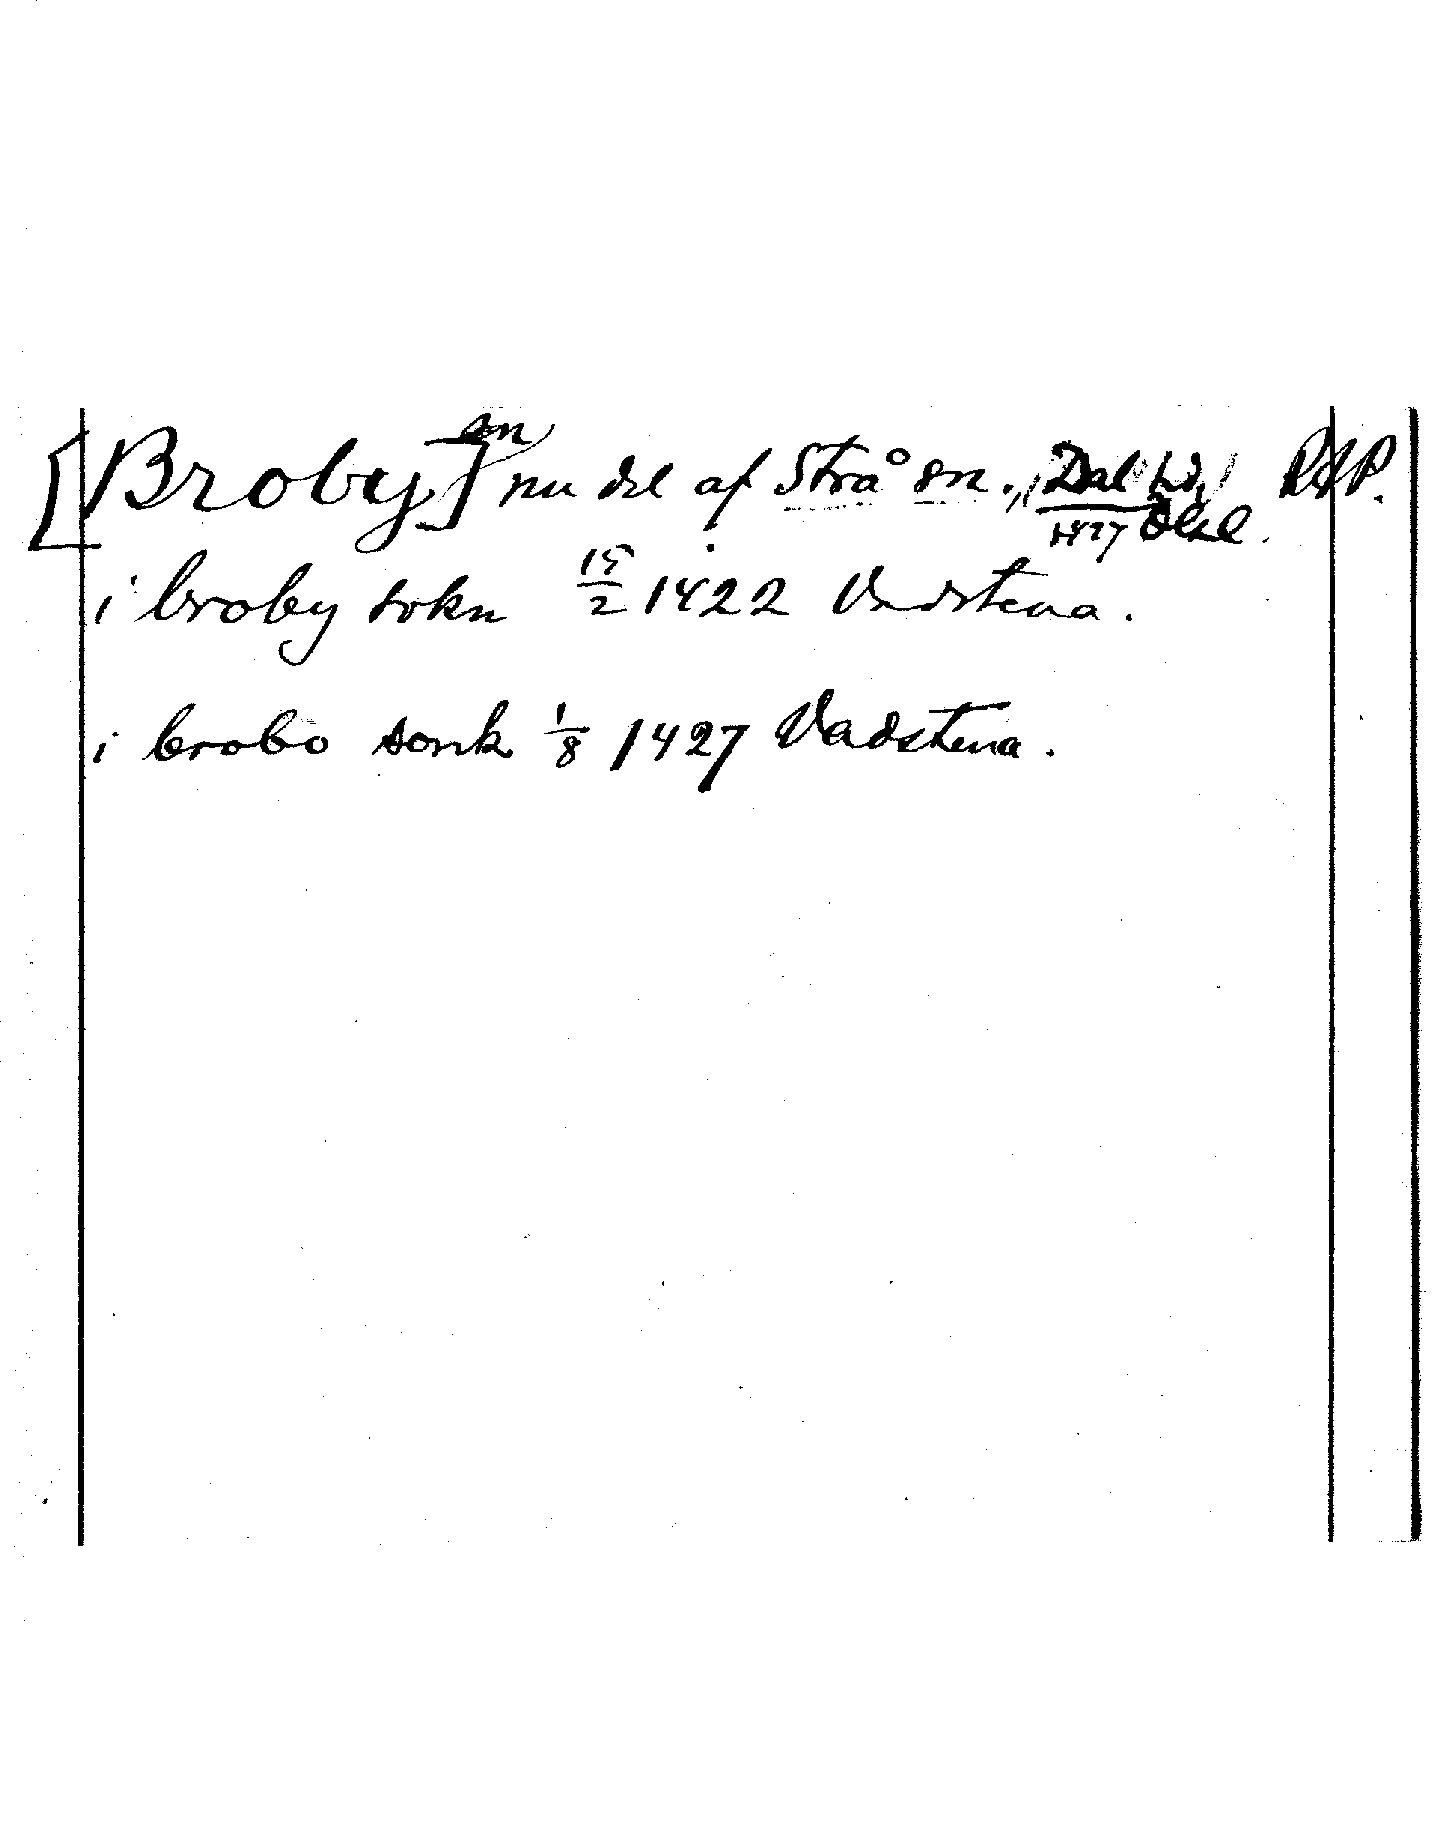 [Broby] sn nu del af Strå sn., (Dal hd,) RAP.
1427 Ög.
i broby sokn 15/2 1422 Vadstena.
i brobo sonk 1/8 1427 Vadstena.